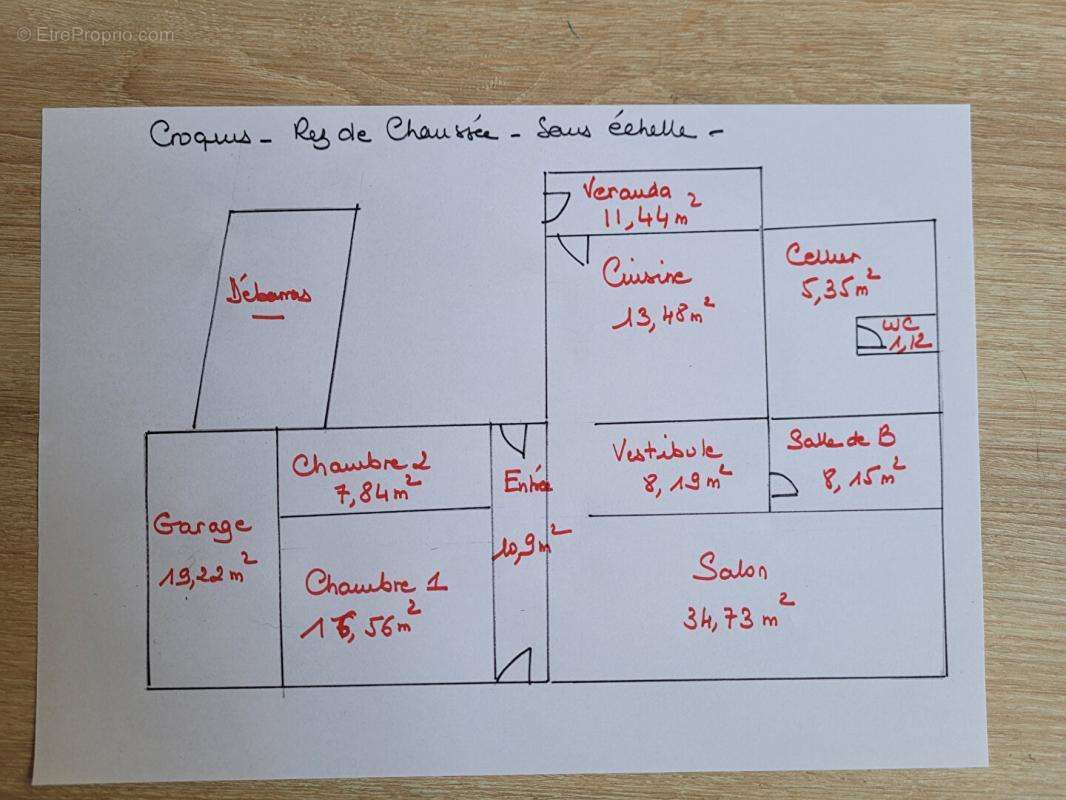 © EtreProprio.com
Croquis - Rez de Chaussée - Sans échelle -
Véranda
11,44 m²
Débarras
Cuisine
13,48 m²
Cellier
5,35 m²
WC
1,12
Chambre 2
7,84 m²
Entrée
10,9 m²
Vestibule
8,19 m²
Salle de B
8,15 m²
Garage
19,22 m²
Chambre 1
m²
Salon
34,73 m²